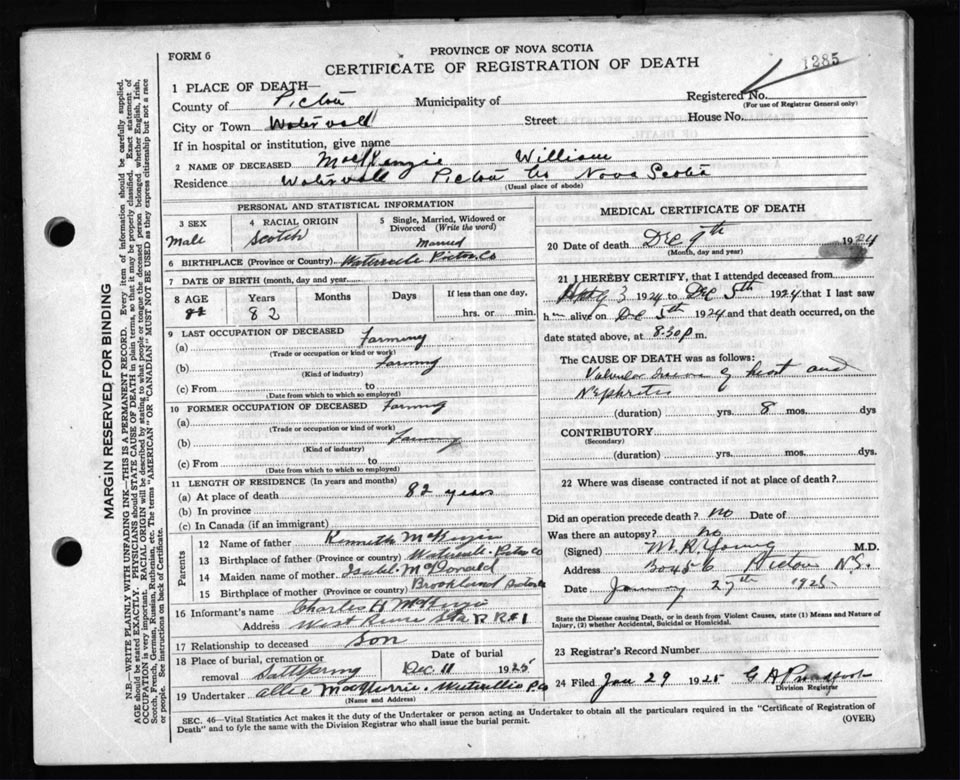 FORM 6
PROVINCE OF NOVA SCOTIA
CERTIFICATE OF REGISTRATION OF DEATH
1285
1 PLACE OF DEATH—
County of Pictou Municipality of
Registered No.
(For use of Registrar General only)
City or Town Street House No.
If in hospital or institution, give name
2 NAME OF DECEASED MacKenzie William
Residence Pictou Co Nova Scotia
(Usual place of abode)
PERSONAL AND STATISTICAL INFORMATION
3 SEX 4 RACIAL ORIGIN 5 Single, Married, Widowed or Divorced (Write the word)
Male Scotch Married
6 BIRTHPLACE (Province or Country) Pictou Co
7 DATE OF BIRTH (month, day and year)
8 AGE Years Months Days If less than one day,
82 82 hrs. or min.
9 LAST OCCUPATION OF DECEASED Farming
(a)
(Trade or occupation or kind or work)
(b) Farming
(Kind of industry)
(c) From to
(Date from which to which so employed)
10 FORMER OCCUPATION OF DECEASED Farming
(a)
(Trade or occupation or kind of work)
(b) Farming
(Kind of industry)
(c) From to
(Date from which to which so employed)
11 LENGTH OF RESIDENCE (In years and months)
(a) At place of death 82 years
(b) In province
(c) In Canada (if an immigrant)
Parents
12 Name of father Kenneth McKenzie
13 Birthplace of father (Province or country) Pictou Co
14 Maiden name of mother McDonald
15 Birthplace of mother (Province or country) Brookland Pictou Co
16 Informant's name Charles H McKenzie
Address West River Sta R R #1
17 Relationship to deceased Son
18 Place of burial, cremation or removal Date of burial
Saltspring Dec 11 1925
19 Undertaker
(Name and Address)
MEDICAL CERTIFICATE OF DEATH
20 Date of death Dec 9th 1924
(Month, day and year)
21 I HEREBY CERTIFY, that I attended deceased from
3 1924 to Dec 5th 1924 that I last saw
him alive on Dec 5th 1924 and that death occurred, on the
date stated above, at 8.30 p m.
The CAUSE OF DEATH was as follows:
Valvular of heart and
Nephritis
(duration) yrs. 8 mos. dys
CONTRIBUTORY
(Secondary)
(duration) yrs. mos. dys.
22 Where was disease contracted if not at place of death?
Did an operation precede death? no Date of
Was there an autopsy? no
(Signed) M. R. Young M.D.
Address Box 456 Pictou N.S.
Date January 27th 1925
State the Disease causing Death, or in death from Violent Causes, state (1) Means and Nature of Injury, (2) whether Accidental, Suicidal or Homicidal.
23 Registrar's Record Number
24 Filed Jan 29 1925 G A
Division Registrar
SEC. 46—Vital Statistics Act makes it the duty of the Undertaker or person acting as Undertaker to obtain all the particulars required in the "Certificate of Registration of
Death" and to fyle the same with the Division Registrar who shall issue the burial permit.
(OVER)
MARGIN RESERVED FOR BINDING
N.B.—WRITE PLAINLY WITH UNFADING INK—THIS IS A PERMANENT RECORD. Every item of information should be carefully supplied.
AGE should be stated EXACTLY. PHYSICIANS should STATE CAUSE OF DEATH in plain terms, so that it may be properly classified. Exact statement of
OCCUPATION is very important. RACIAL ORIGIN will be described by stating to what people or tongue the deceased person belonged whether English, Irish,
Scotch, French, German, Russian, Ruthenian, etc. The terms "AMERICAN" OR "CANADIAN" MUST NOT BE USED as they express citizenship but not a race
or people. See instructions on back of Certificate.